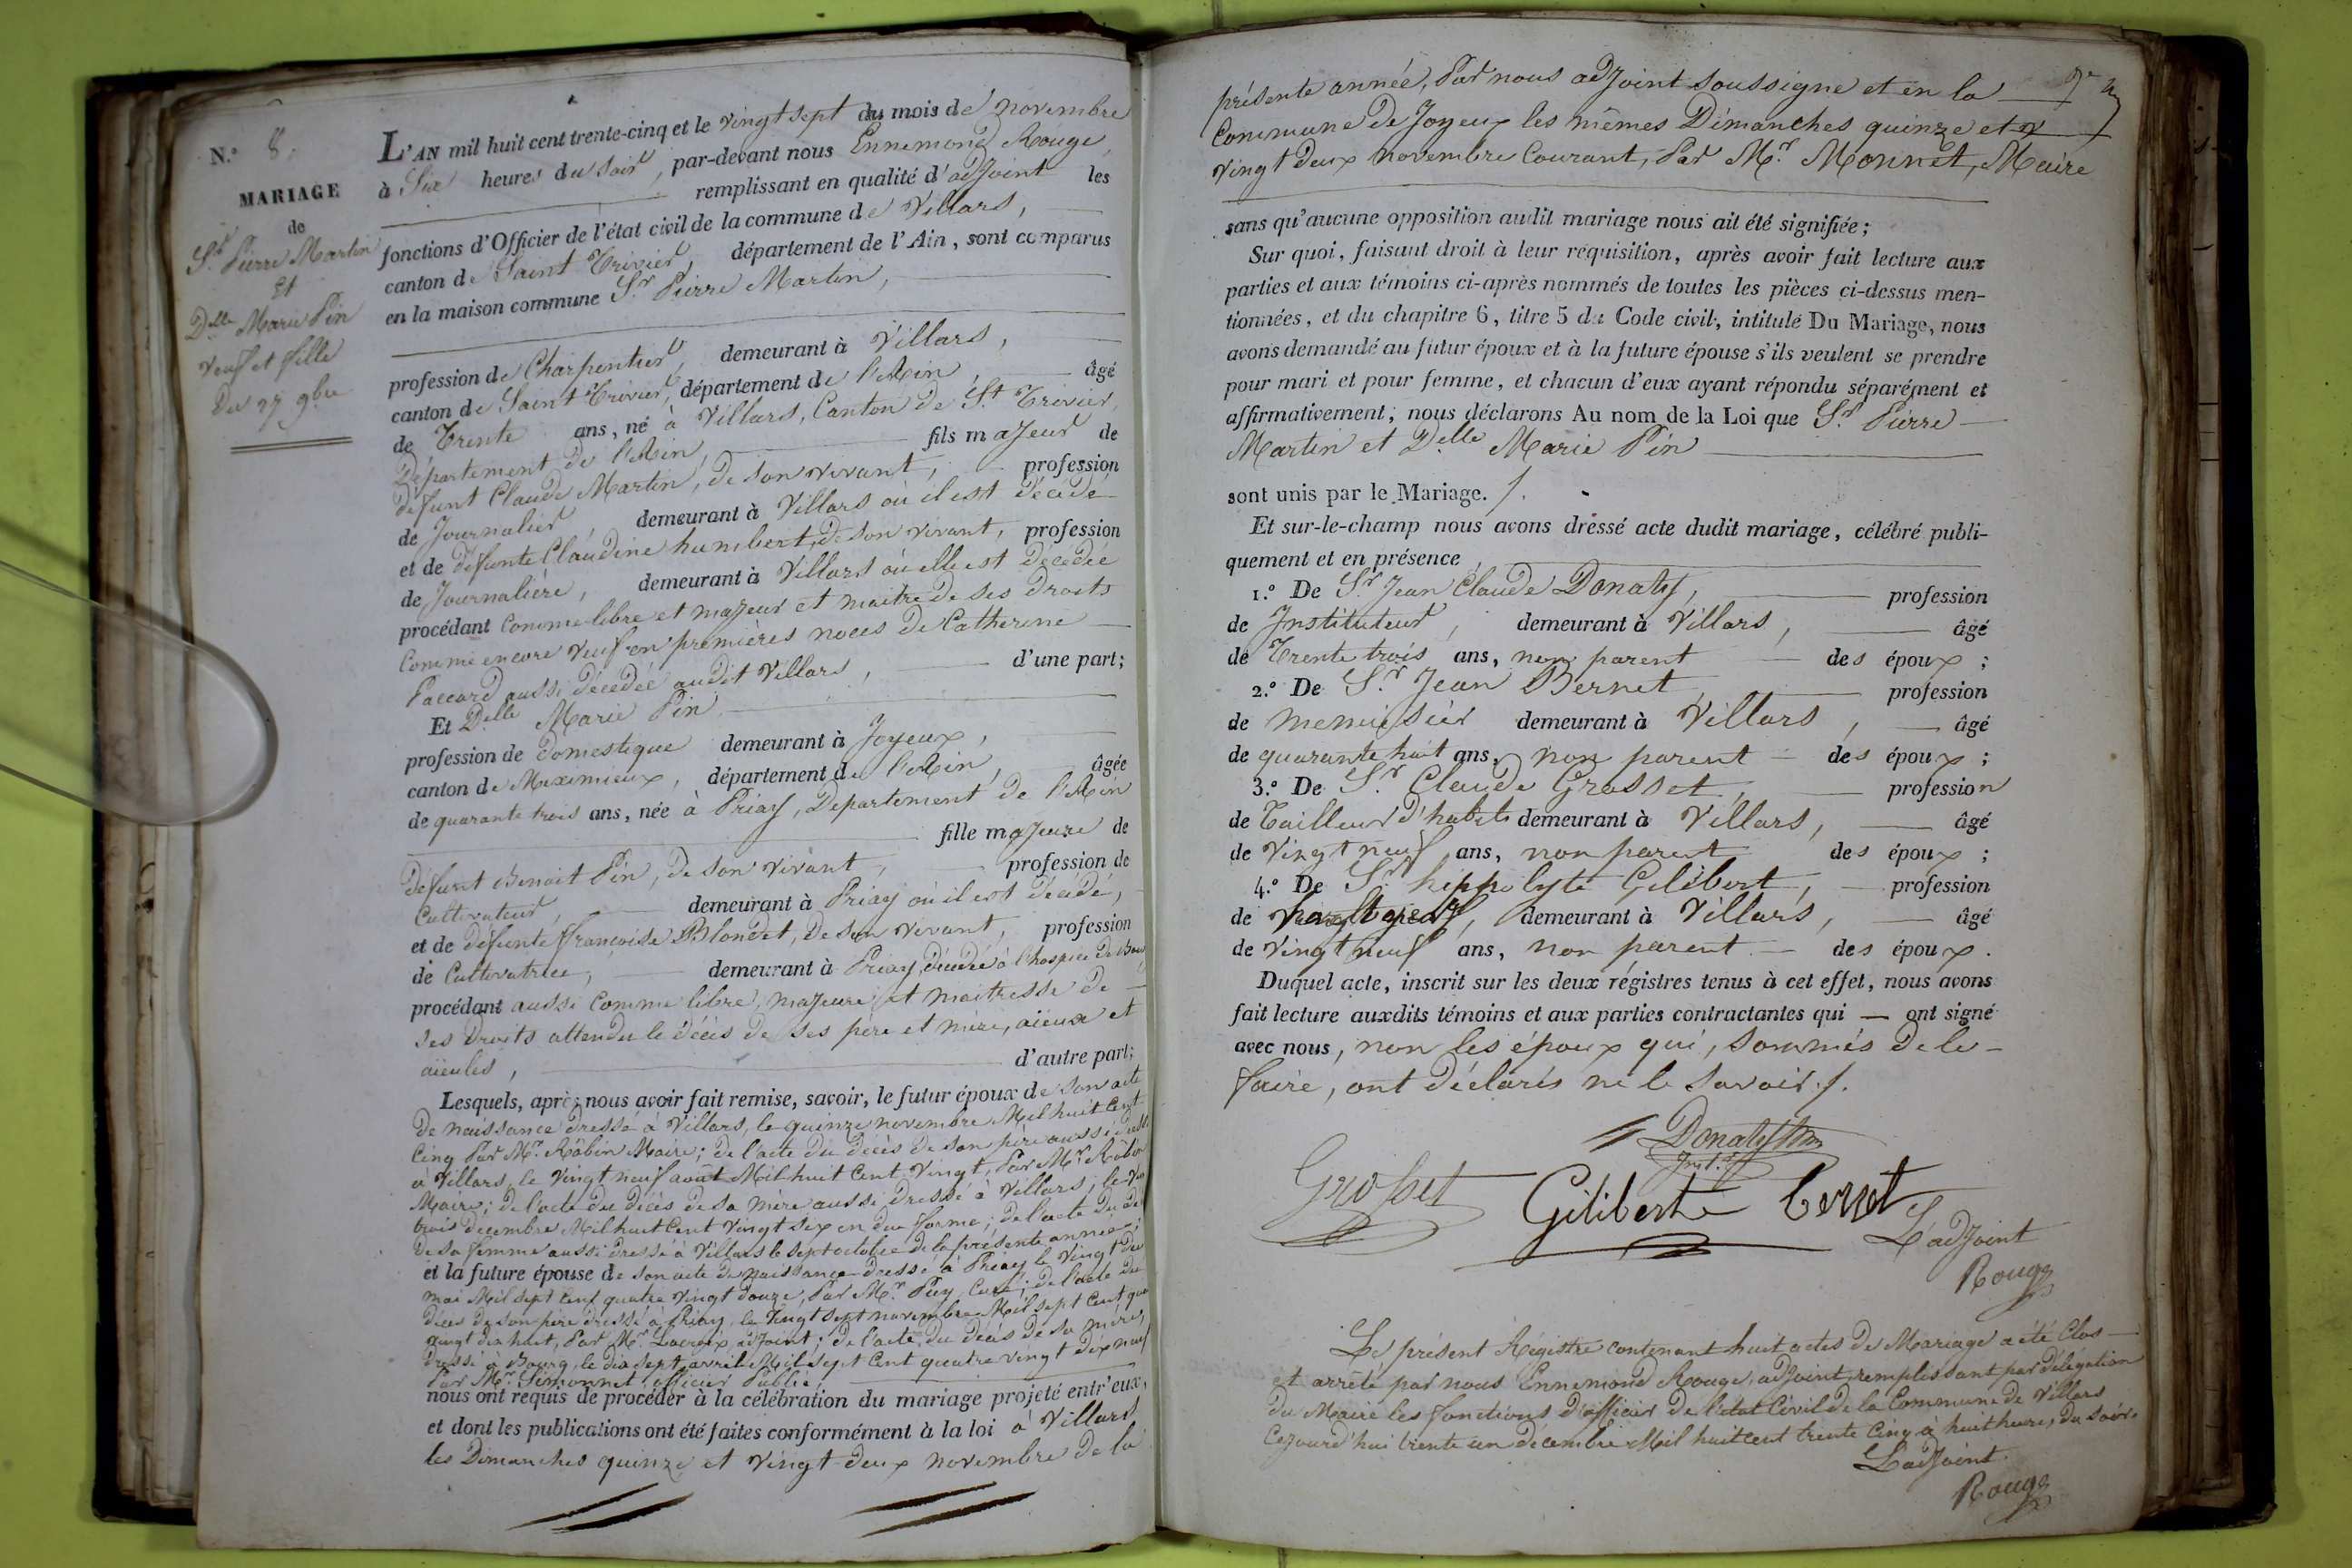 N.° 8.
MARIAGE
de
S.r Pierre Martin
Et
D.lle Marie Pin
veuf et fille
Du 27 9bre
L'AN mil huit cent trente-cinq et le vingt sept du mois de novembre
à Six heures du soir, par-devant nous Ennemond Rouge,
remplissant en qualité d'adjoint les
fonctions d'Officier de l'état civil de la commune de Villars,
canton de Saint Trivier, département de l'Ain, sont comparus
en la maison commune S.r Pierre Martin,
profession de Charpentier, demeurant à Villars,
canton de Saint Trivier, département de l'Ain, âgé
de Trente ans, né à Villars, Canton de S.t Trivier,
Département de l'Ain, fils majeur de
défunt Claude Martin, de son vivant, profession
de Journalier, demeurant à Villars où il est décédé
et de défunte Claudine humbert, de son vivant, profession
de Journalière, demeurant à Villars où elle est décédée
procédant comme libre et majeur et maitre de ses droits
Comme encore veuf en premières noces de Catherine
Paccard aussi décédée audit Villars, d'une part;
Et D.lle Marie Pin
profession de domestique demeurant à Joyeux,
canton de Meximieux, département de l'Ain, âgée
de quarante trois ans, née à Priay, Département de l'Ain
fille majeure de
défunt Benoit Pin, de son vivant, profession de
Cultivateur, demeurant à Priay où il est décédé,
et de défunte françoise Blondet, de son vivant, profession
de Cultivatrice, demeurant à Priay, décédée à l'hospice de
procédant aussi comme libre, majeure et maitresse de
ses droits attendu le décès de ses père et mère, aïeux et
aïeules, d'autre part;
Lesquels, après nous avoir fait remise, savoir, le futur époux de son acte
de naissance dressé à Villars, le quinze novembre Mil huit Cent
Cinq Par M.r Robin Maire; de l'acte du décès de son père aussi
à Villars, le vingt neuf août Mil huit Cent Vingt, Par M.r Robin
Maire; de l'acte du décès de sa mère aussi dressé à Villars, le
trois décembre Mil huit Cent vingt six en due forme; de l'acte du
de sa femme aussi dressé à Villars le sept octobre de la présente année;
et la future épouse de son acte de naissance dressé à Priay le Vingt
mai Mil sept Cent quatre vingt douze, Par M.r Puy, Curé; de l'acte du
décès de son père dressé à Priay, le Vingt sept novembre Mil sept Cent
vingt dix huit, Par M.r Lacroix adjoint; de l'acte du décès de sa mère,
dressé à Bourg, le dix sept avril Mil sept Cent quatre vingt dix neuf
Par M.r Simonnet, officier Public,
nous ont requis de procéder à la célébration du mariage projeté entr'eux,
et dont les publications ont été faites conformément à la loi à Villars
les Dimanches quinze et vingt deux novembre de la
présente année, Par nous adjoint soussigné et en la
Commune de Joyeux les mêmes Dimanches quinze et
vingt deux novembre Courant, Par M.r Monnet, Maire
sans qu'aucune opposition audit mariage nous ait été signifiée;
Sur quoi, faisant droit à leur réquisition, après avoir fait lecture aux
parties et aux témoins ci-après nommés de toutes les pièces ci-dessus men-
tionnées, et du chapitre 6, titre 5 du Code civil, intitulé Du Mariage, nous
avons demandé au futur époux et à la future épouse s'ils veulent se prendre
pour mari et pour femme, et chacun d'eux ayant répondu séparément et
affirmativement, nous déclarons Au nom de la Loi que S.r Pierre
Martin et D.elle Marie Pin
sont unis par le Mariage. /.
Et sur-le-champ nous avons dressé acte dudit mariage, célébré publi-
quement et en présence
1.° De S.r Jean Claude Donaty, profession
de Instituteur, demeurant à Villars, âgé
de Trente trois ans, non parent des époux;
2.° De S.r Jean Bernet profession
de menuisier demeurant à Villars, âgé
de quarante huit ans, non parent des époux;
3.° De S.r Claude Grosset, profession
de Tailleur d'habits demeurant à Villars, âgé
de Vingt neuf ans, non parent des époux;
4.° De S.r hippolyte Gilibert, profession
de demeurant à Villars, âgé
de Vingt neuf ans, non parent des époux.
Duquel acte, inscrit sur les deux régistres tenus à cet effet, nous avons
fait lecture auxdits témoins et aux parties contractantes qui — ont signé
avec nous, non les époux qui, sommés de le
faire, ont déclarés ne le savoir. /.
Donaty
Inst.r
Grosset Gilibert Bernet
L'adjoint
Rouge
Le présent Régistre contenant huit actes de Mariage a été Clos
et arrêté par nous Ennemond Rouge, adjoint, remplissant par délégation
du Maire les fonctions d'officier de l'état Civil de la Commune de Villars
Cejourd'hui trente un décembre Mil huit cent trente Cinq à huit heures du soir.
L'adjoint.
Rouge